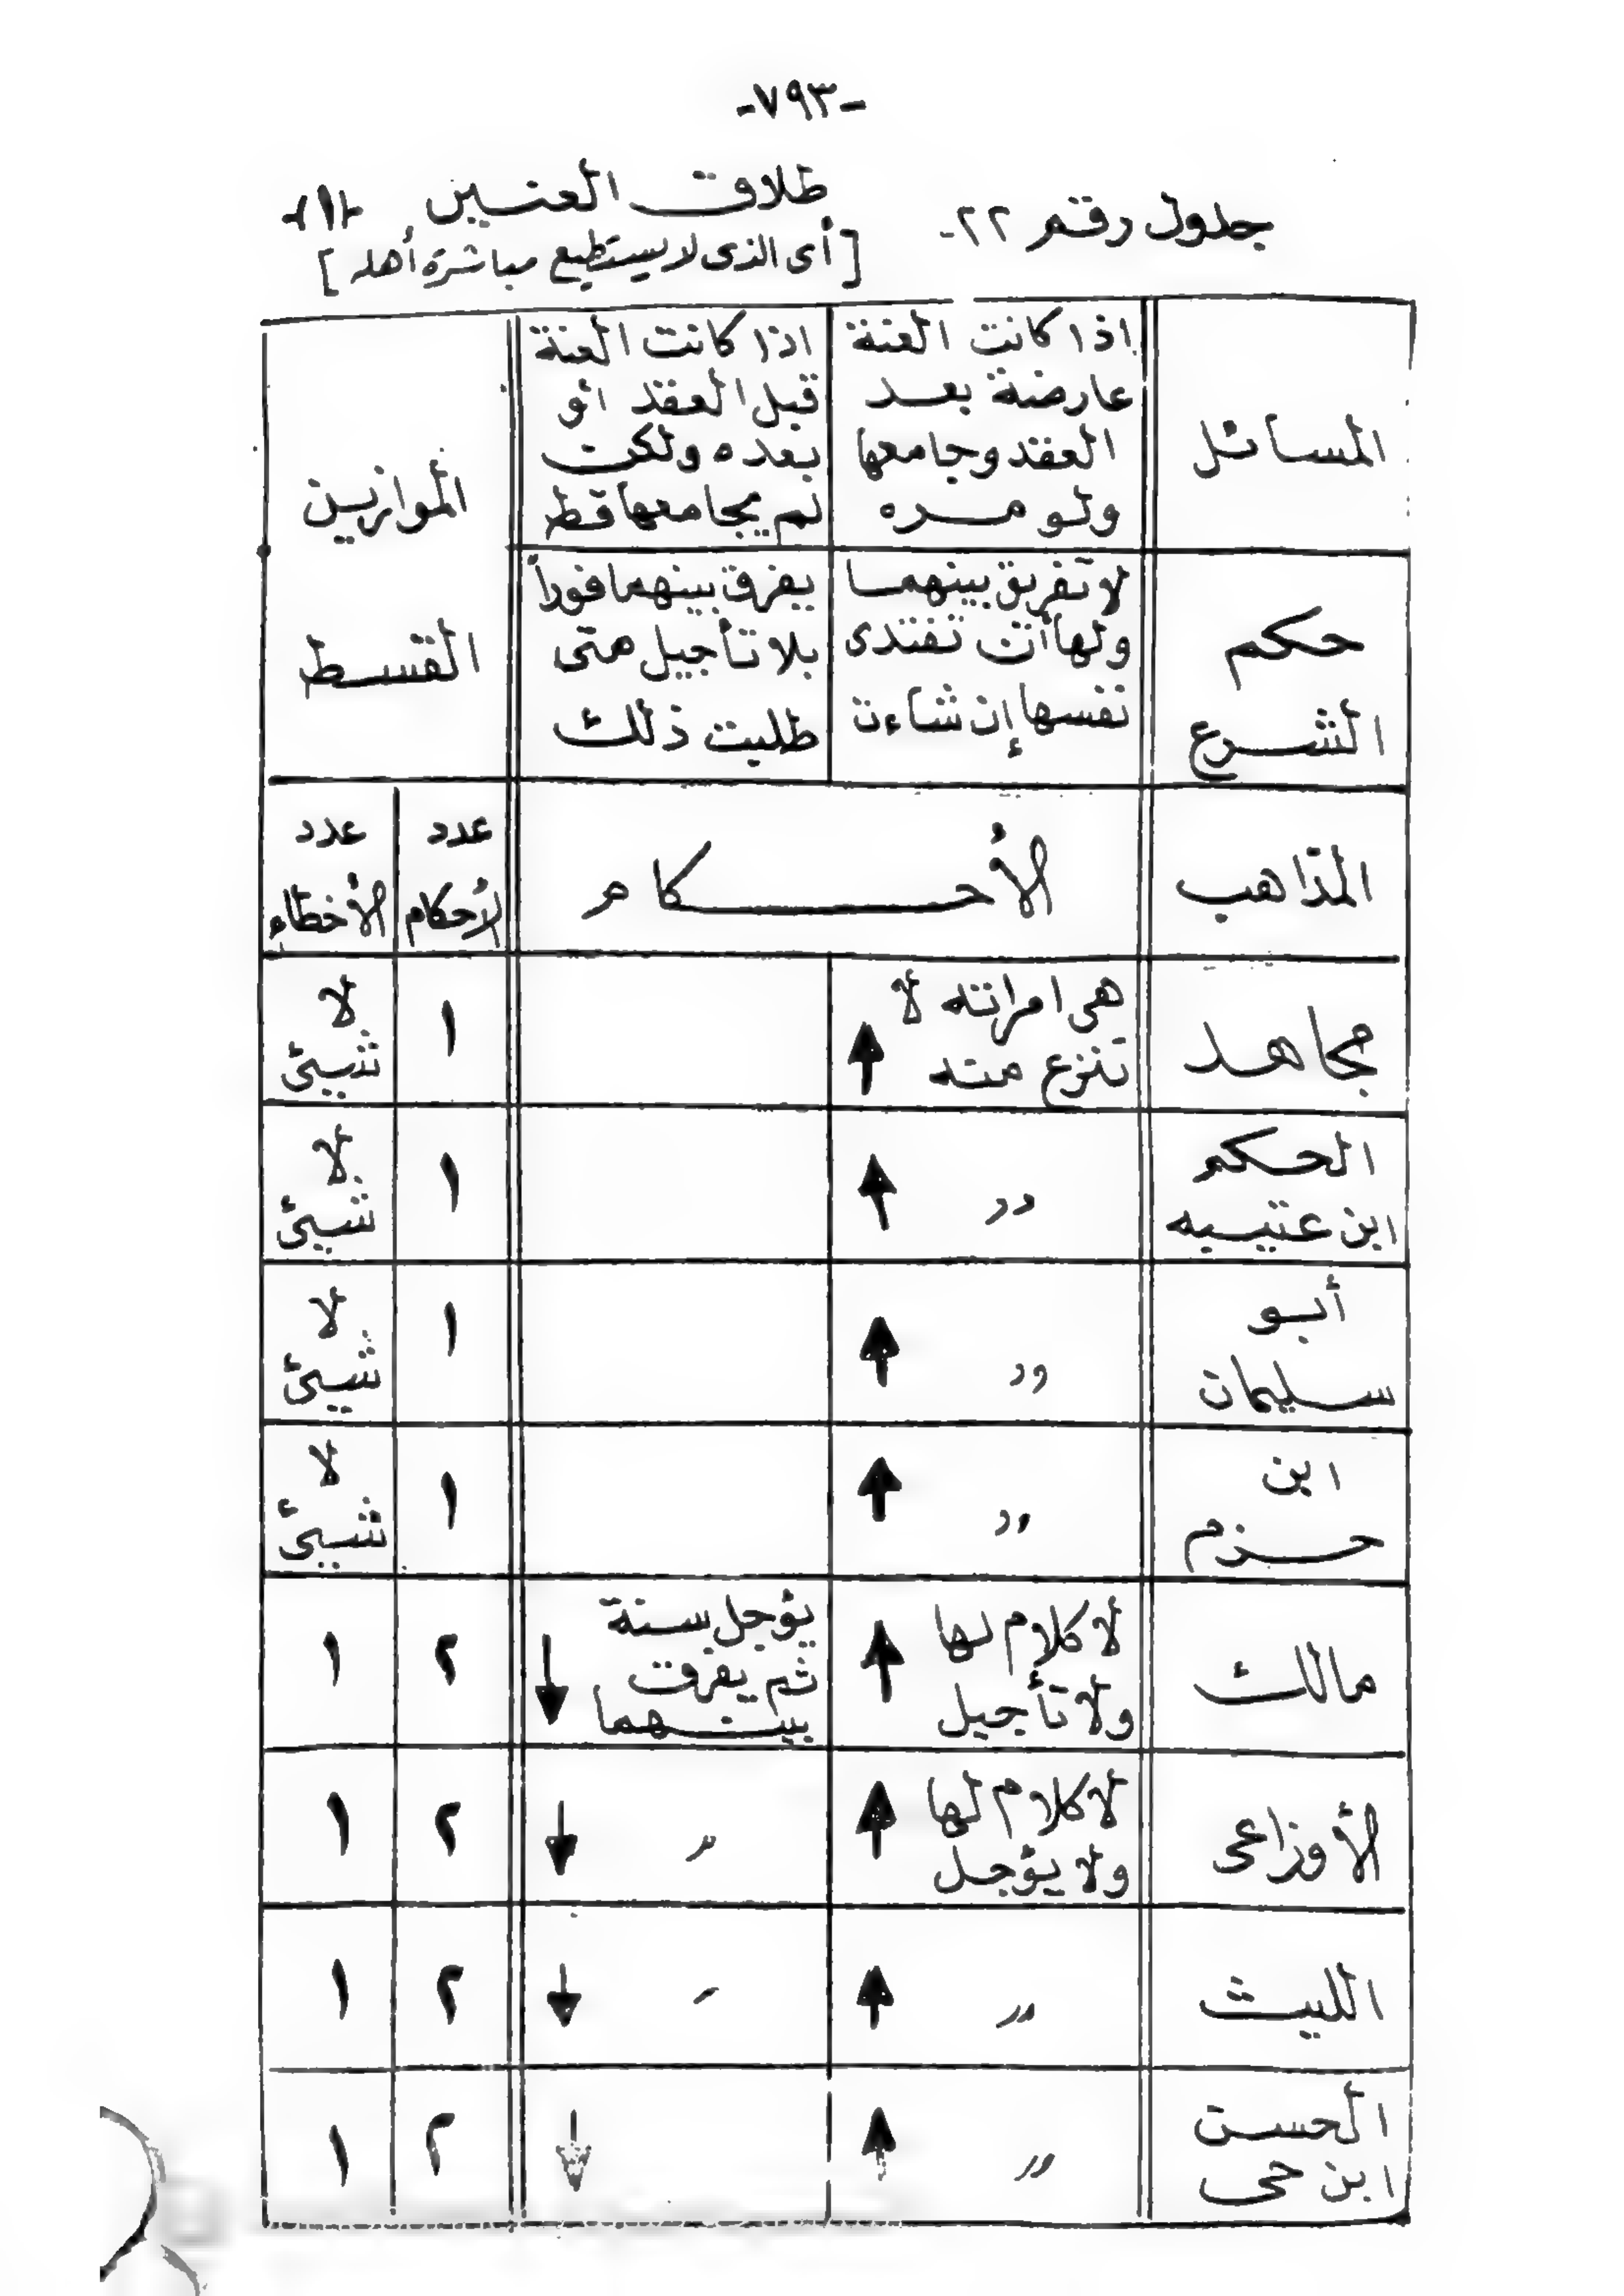 -٧٩٣-
جدول رقم ٢٢- طلاق العنين -(١)-
[أى الذى لا يستطيع مباشرة أهله]
المسائل
اذا كانت العنة
عارضة بعد
العقد وجامعها
ولو مره
اذا كانت العنة
قبل العقد أو
بعده ولكن
لم يجامعها قط
الموازين
القسط
حكم
الشرع
لا تفريق بينهما
ولها أن تفتدى
نفسها إن شاءت
يفرق بينهما فوراً
بلا تأجيل متى
طلبت ذلك
المذاهب
الأحكام
عدد
الأحكام
عدد
الأخطاء
مجاهد
هى امراته لا
تنزع منه
↑
١
لا
شيئ
الحكم
ابن عتيبيه
〃 ↑
١
لا
شيئ
أبو
سليمان
〃 ↑
١
لا
شيئ
ابن
حزم
〃 ↑
١
لا
شيئ
مالك
لا كلام لها
ولا تأجيل
↑
يؤجل سنة
ثم يفرق
بينهما
↓
٢
١
الأوزاعى
لا كلام لها
ولا يؤجل
↑
〃 ↓
٢
١
الليث
〃 ↑
〃 ↓
٢
١
الحسن
ابن حى
〃 ↑
↓
٢
١